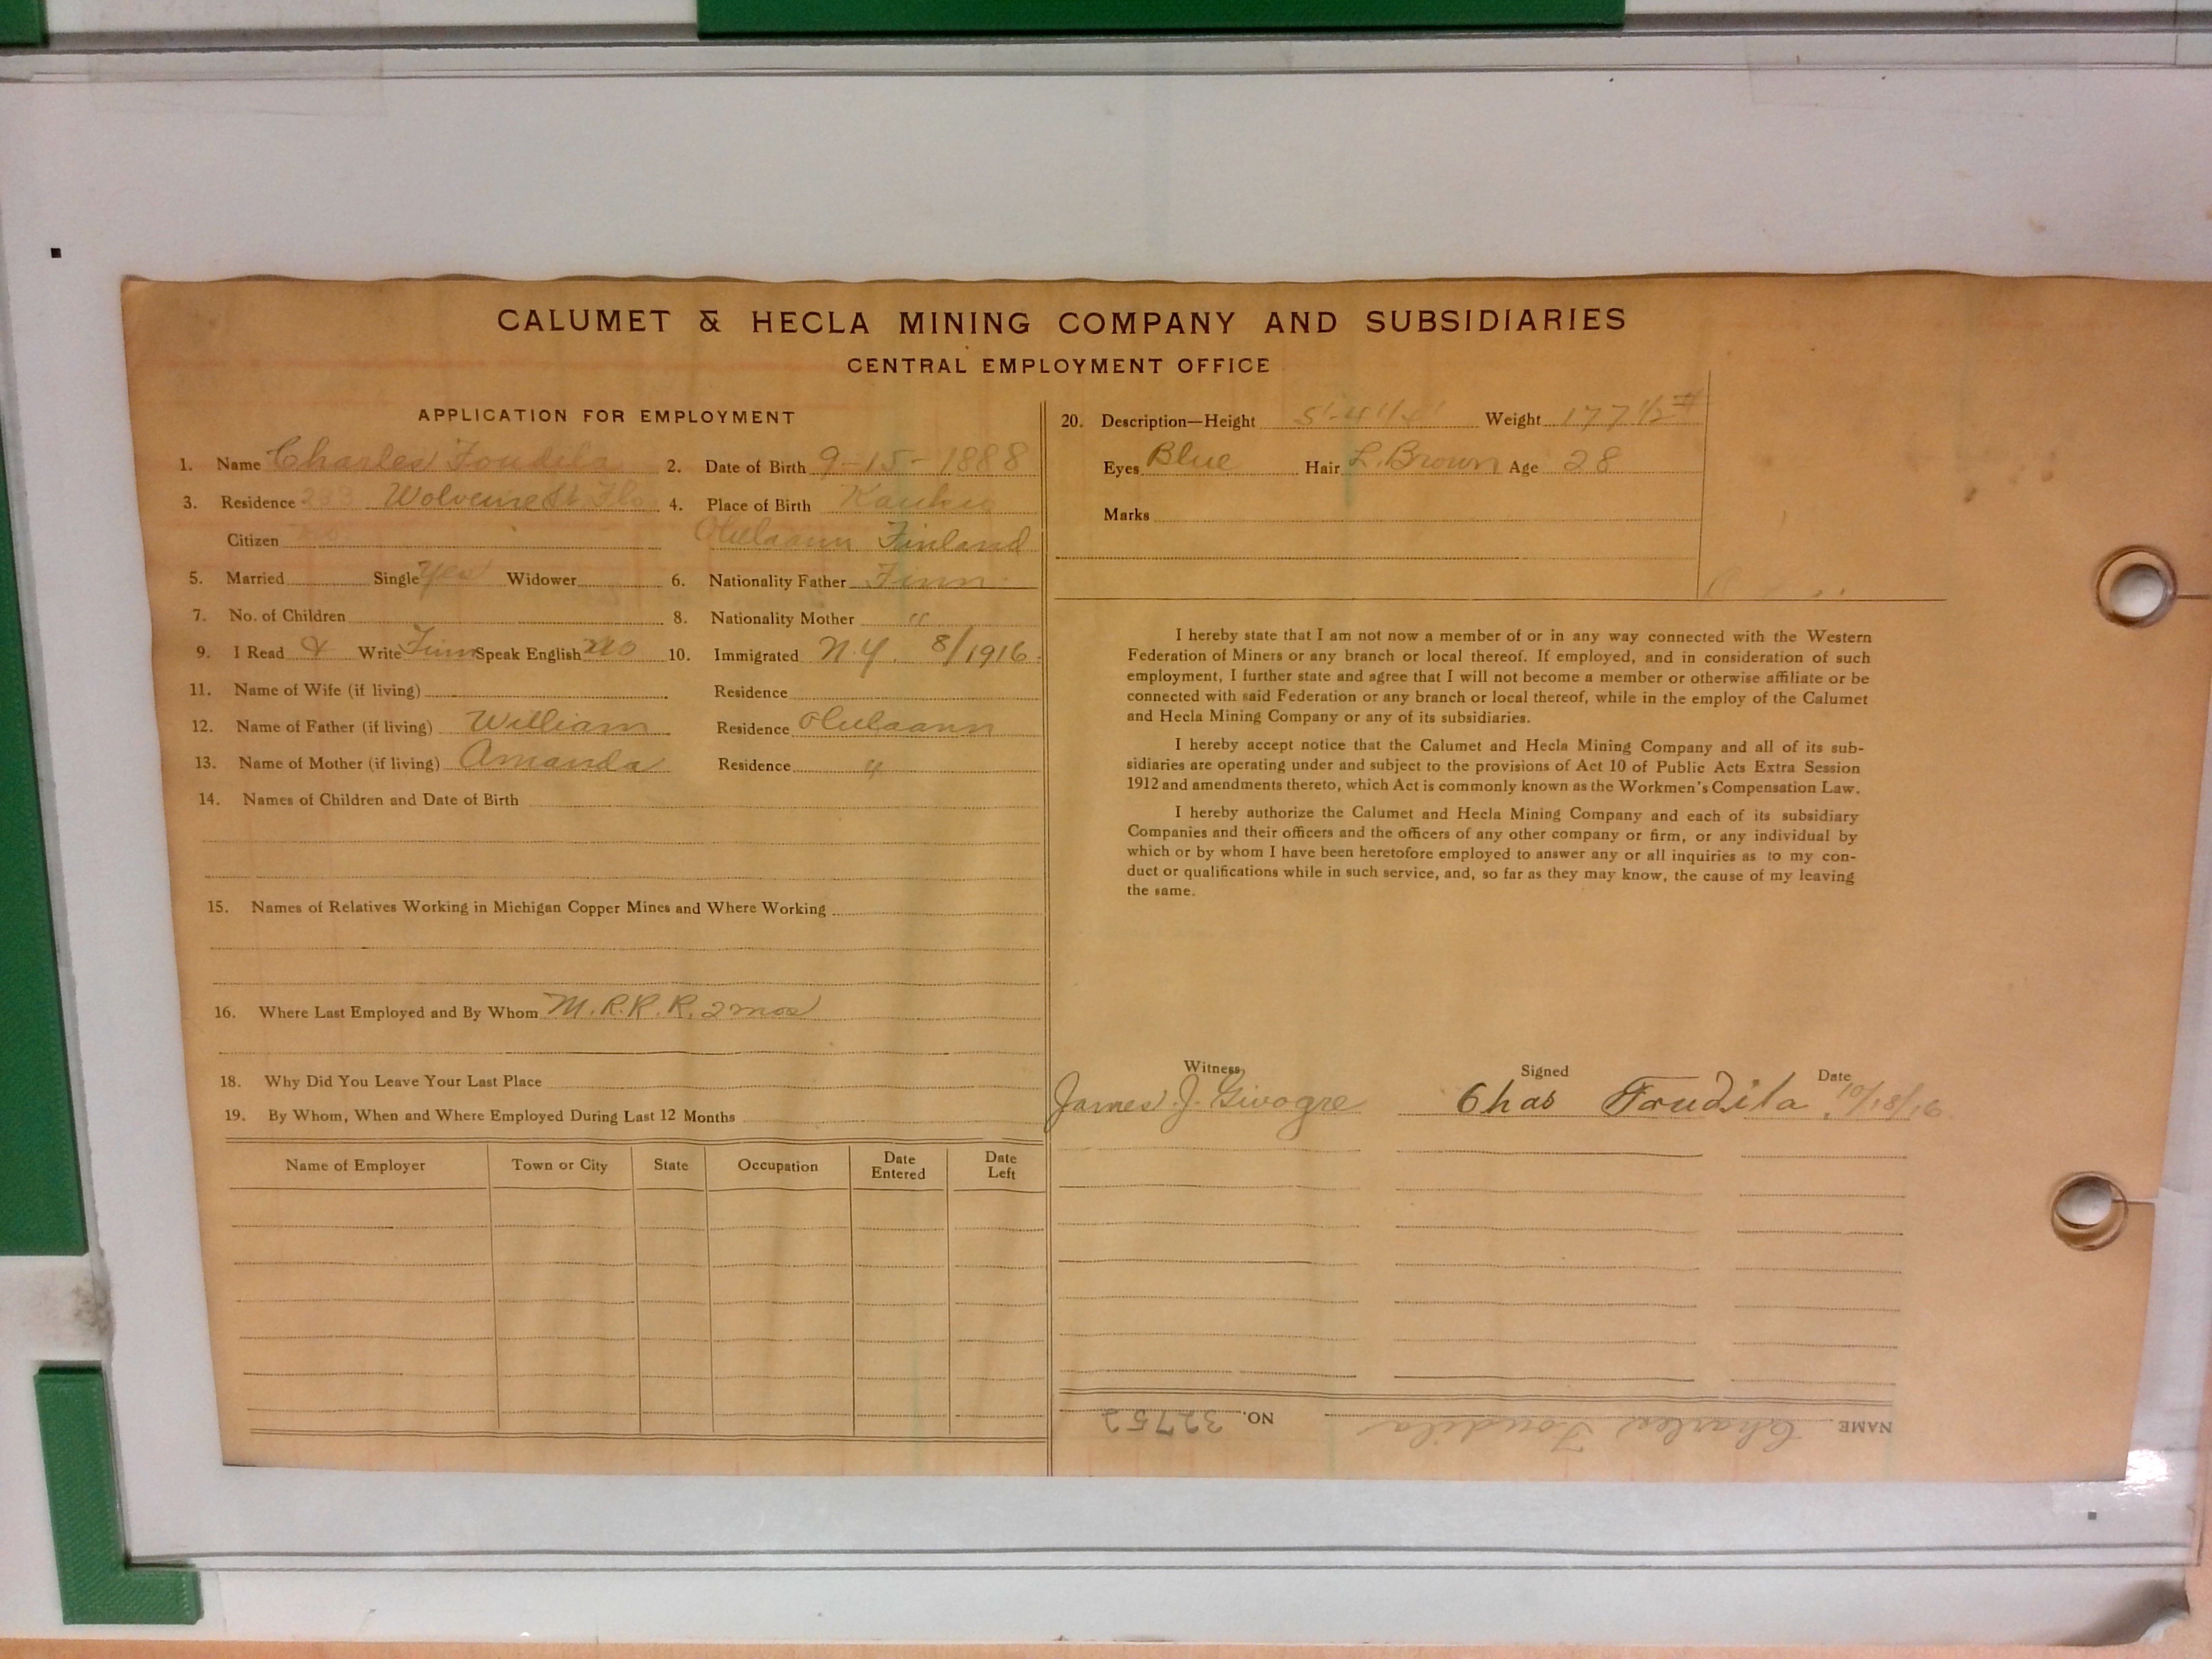 CALUMET & HECLA MINING COMPANY AND SUBSIDIARIES
CENTRAL EMPLOYMENT OFFICE
APPLICATION FOR EMPLOYMENT
1. Name Charles Foudila 2. Date of Birth 9-15-1888
3. Residence Wolverine St Flo 4. Place of Birth
Citizen No. Finland
5. Married Single Yes Widower 6. Nationality Father Finn
7. No. of Children 8. Nationality Mother "
9. I Read & Write Finn Speak English No 10. Immigrated N.Y. 8/1916.
11. Name of Wife (if living) Residence
12. Name of Father (if living) William Residence
13. Name of Mother (if living) Amanda Residence "
14. Names of Children and Date of Birth
15. Names of Relatives Working in Michigan Copper Mines and Where Working
16. Where Last Employed and By Whom M.R.R.R. 2 mos
18. Why Did You Leave Your Last Place
19. By Whom, When and Where Employed During Last 12 Months
Name of Employer Town or City State Occupation Date Entered Date Left
20. Description—Height Weight 177 1/2 #
Eyes Blue Hair L. Brown Age 28
Marks
I hereby state that I am not now a member of or in any way connected with the Western
Federation of Miners or any branch or local thereof. If employed, and in consideration of such
employment, I further state and agree that I will not become a member or otherwise affiliate or be
connected with said Federation or any branch or local thereof, while in the employ of the Calumet
and Hecla Mining Company or any of its subsidiaries.
I hereby accept notice that the Calumet and Hecla Mining Company and all of its sub-
sidiaries are operating under and subject to the provisions of Act 10 of Public Acts Extra Session
1912 and amendments thereto, which Act is commonly known as the Workmen's Compensation Law.
I hereby authorize the Calumet and Hecla Mining Company and each of its subsidiary
Companies and their officers and the officers of any other company or firm, or any individual by
which or by whom I have been heretofore employed to answer any or all inquiries as to my con-
duct or qualifications while in such service, and, so far as they may know, the cause of my leaving
the same.
Witness Signed Date
James J. Givogre Chas Foudila 10/18/16
NAME Charles Foudila NO. 32752